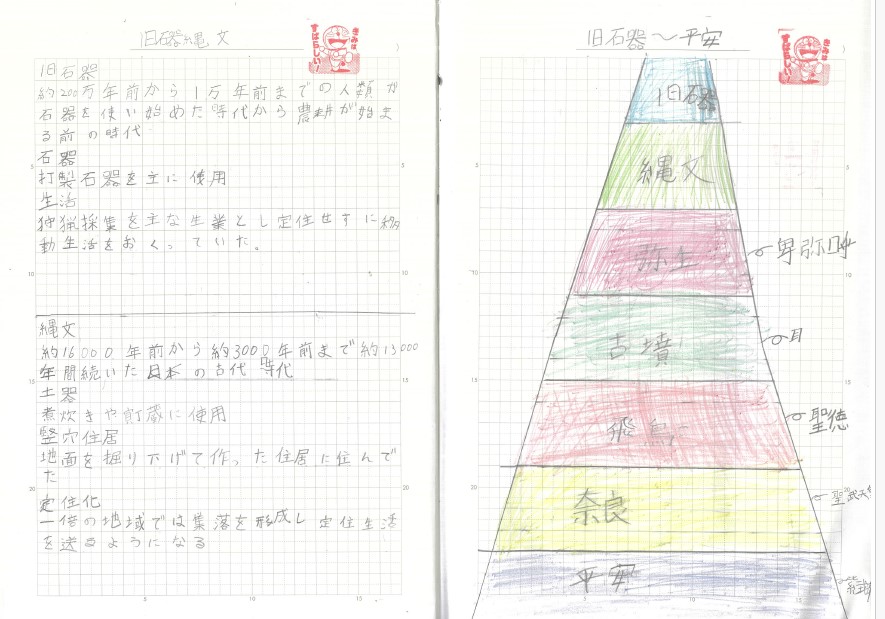 旧石器縄文
きみは
すばらしい!
旧石器
約200万年前から1万年前までの人類が
石器を使い始めた時代から農耕が始ま
る前の時代
石器
打製石器を主に使用
生活
狩猟採集を主な生業とし定住せずに移
動生活をおくっていた。
縄文
約16000年前から約3000年前まで約13000
年間続いた日本の古代時代
土器
煮炊きや貯蔵に使用
竪穴住居
地面を掘り下げて作った住居に住んで
た
定住化
一倍の地域では集落を形成し定住生活
を送るようになる
旧石器〜平安
きみは
すばらしい!
旧石器
縄文
弥生
卑弥呼
古墳
飛鳥
聖徳
奈良
聖武天
平安